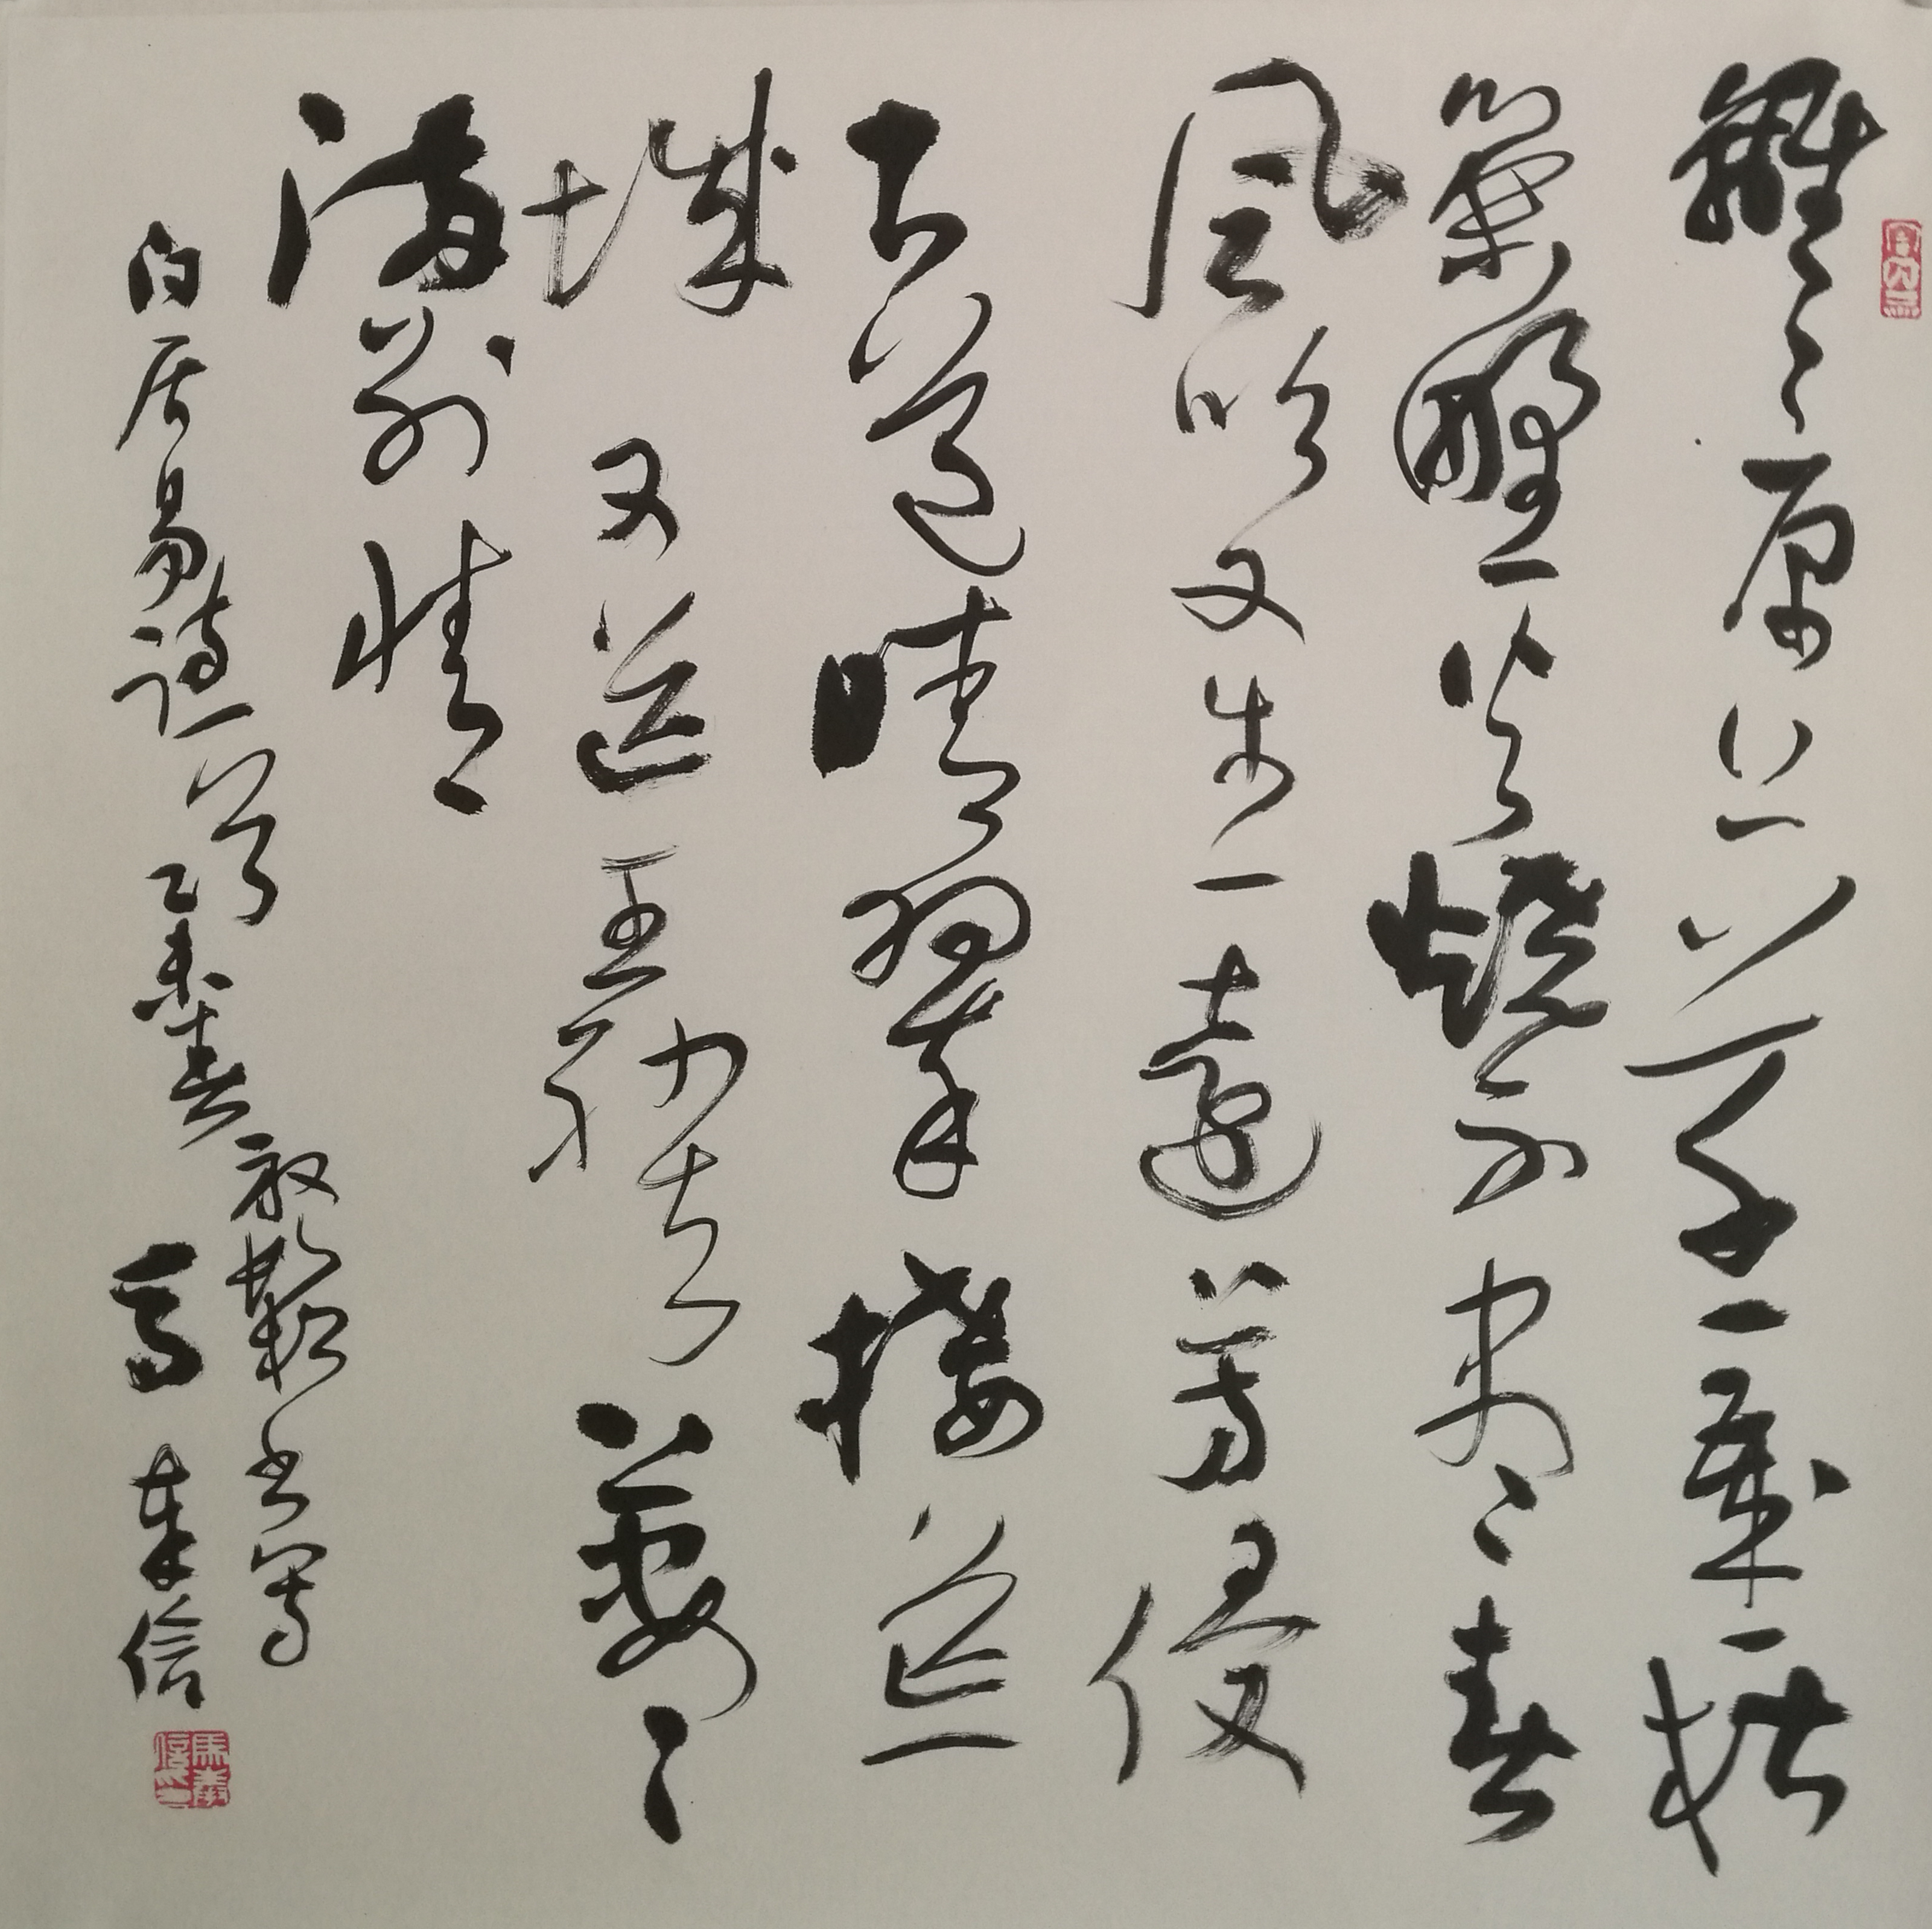 離々原上草一歲一枯
榮野火燒不盡春
風吹又生一遠芳侵
古道晴翠接荒
城又送王孫去萋々
滿別情
白居易詩一首乙未春書寫
馬奉信